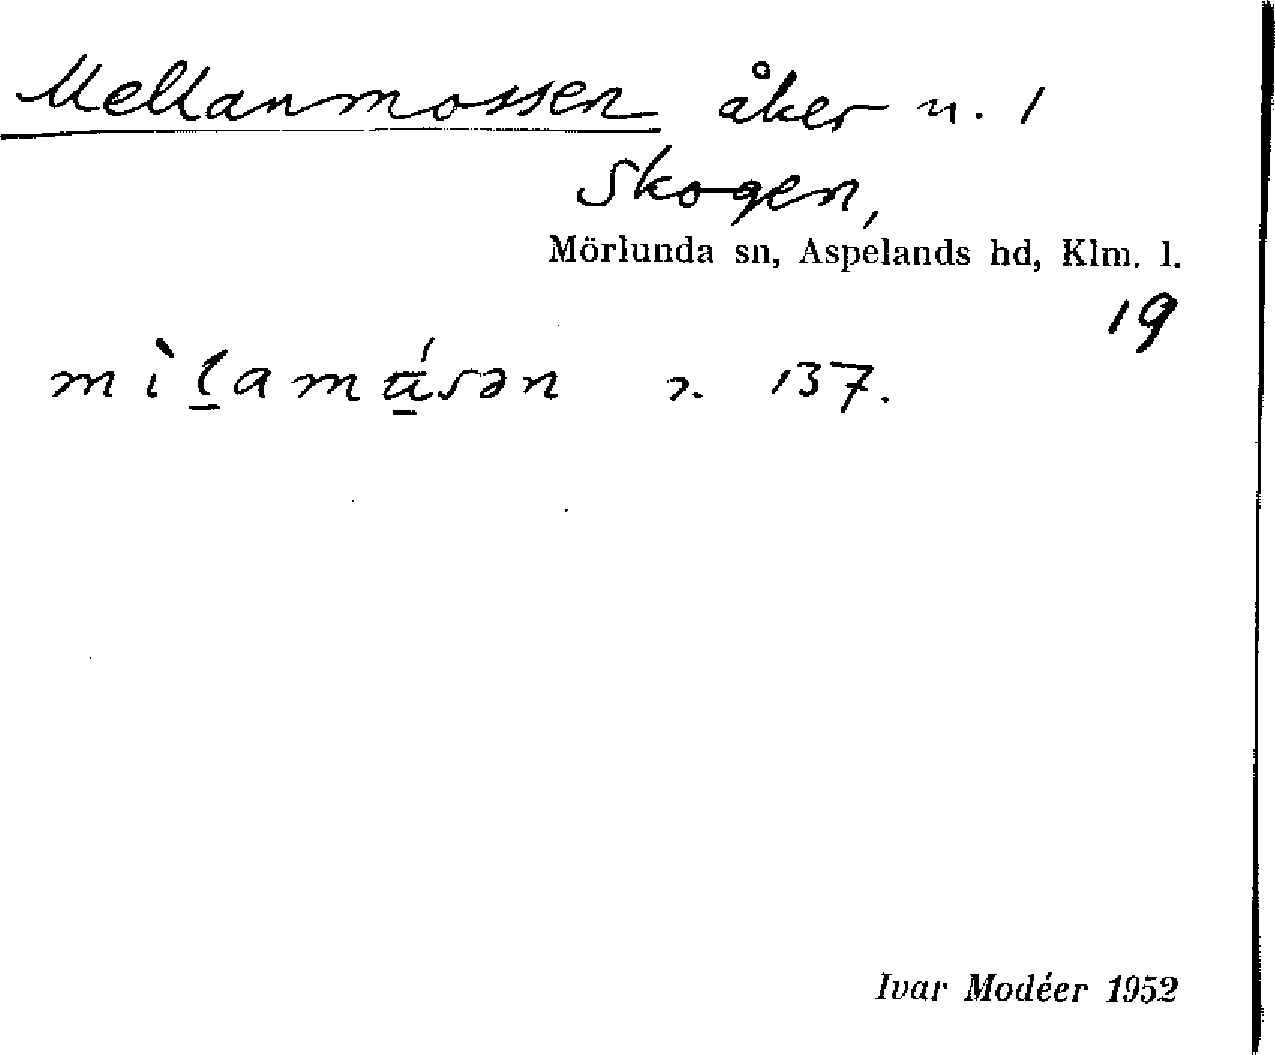 Mellanmossen åker n. 1
Skogen,
Mörlunda sn, Aspelands hd, Klm. l.
19
137.
Ivar Modéer 1952